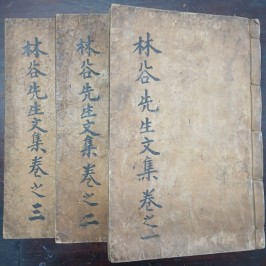 林谷先生文集卷之一
林谷先生文集卷之二
林谷先生文集卷之三